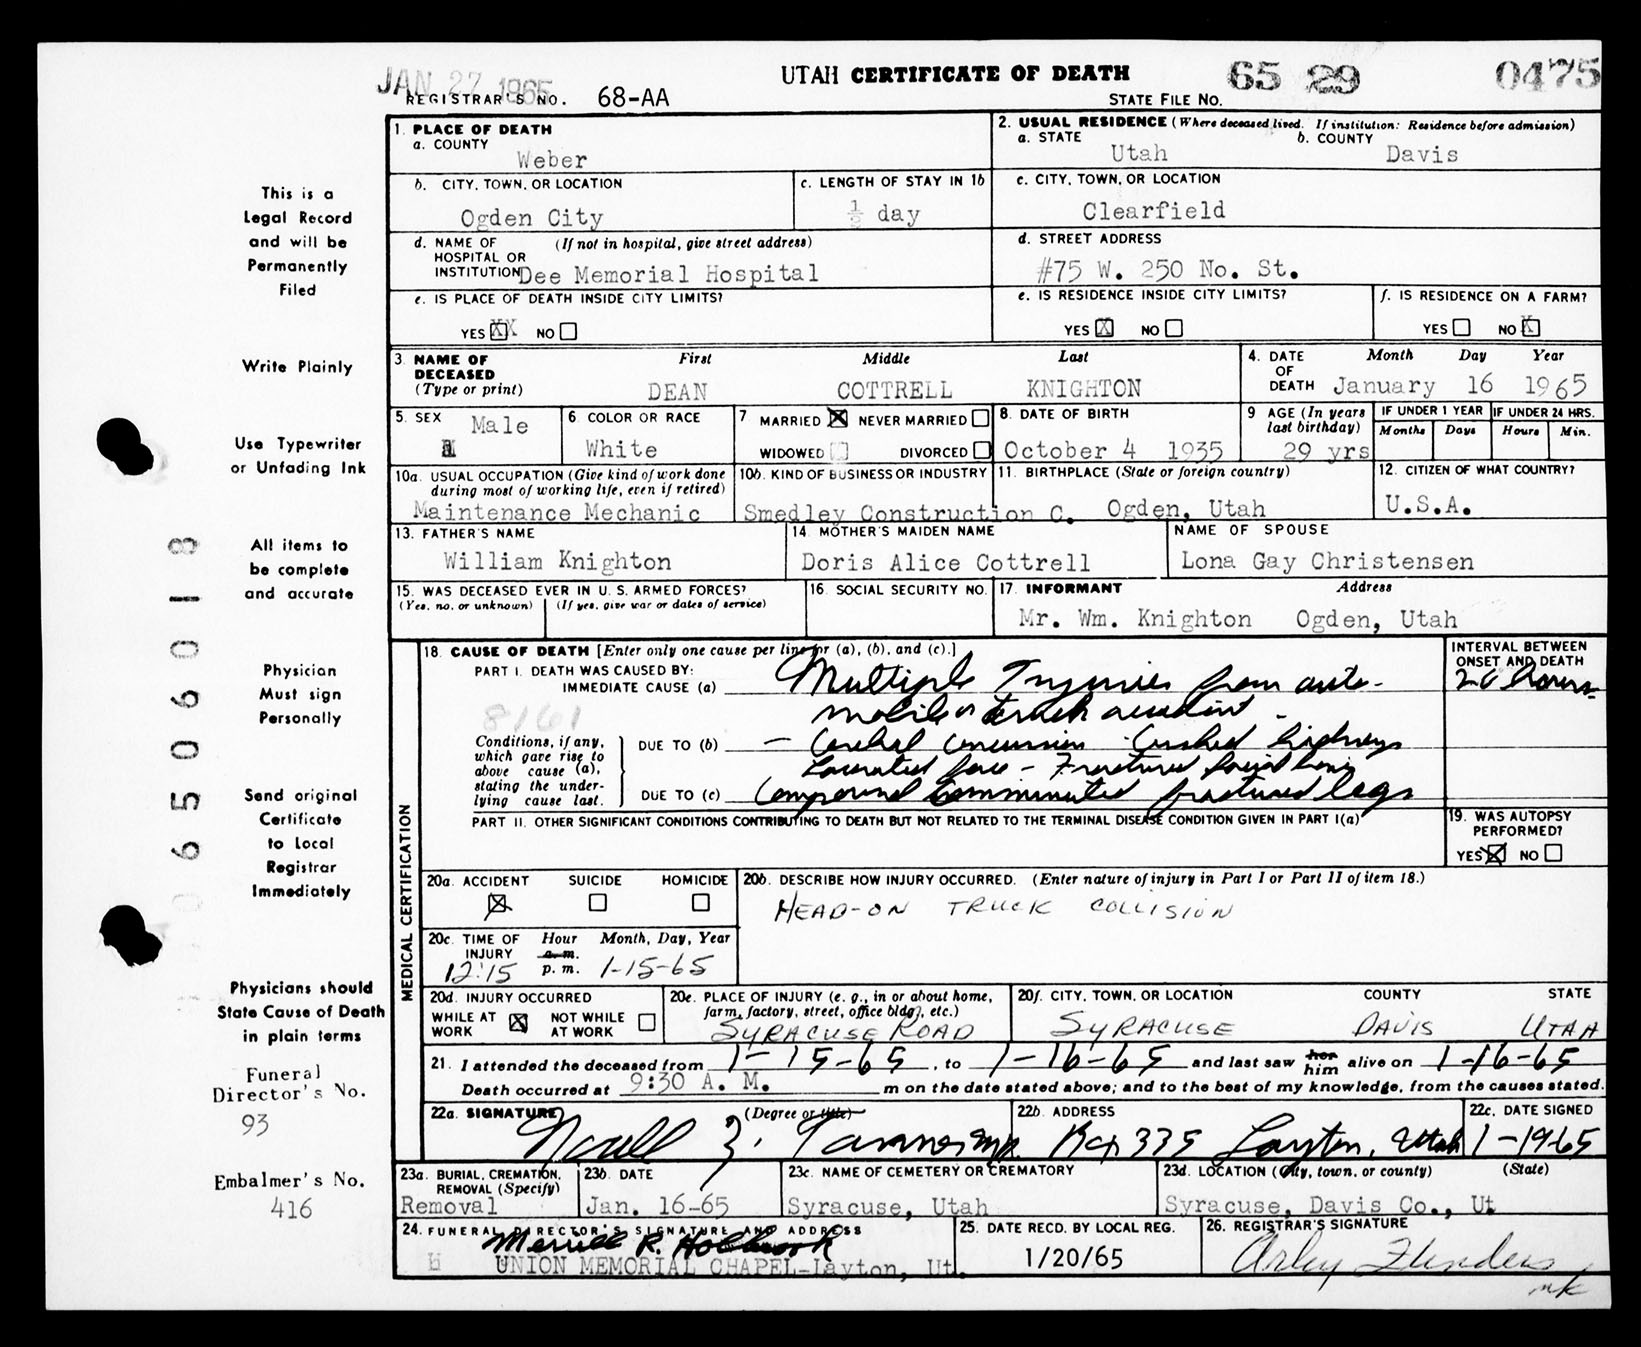 JAN 27 1965
UTAH CERTIFICATE OF DEATH 65 29 0475
REGISTRAR'S NO. 68-AA STATE FILE NO.
1. PLACE OF DEATH
a. COUNTY
Weber
2. USUAL RESIDENCE (Where deceased lived. If institution: Residence before admission)
a. STATE b. COUNTY
Utah Davis
b. CITY, TOWN, OR LOCATION
Ogden City
c. LENGTH OF STAY IN 1b
½ day
c. CITY, TOWN, OR LOCATION
Clearfield
d. NAME OF (If not in hospital, give street address)
HOSPITAL OR
INSTITUTION Dee Memorial Hospital
d. STREET ADDRESS
#75 W. 250 No. St.
e. IS PLACE OF DEATH INSIDE CITY LIMITS?
YES XX NO
e. IS RESIDENCE INSIDE CITY LIMITS?
YES X NO
f. IS RESIDENCE ON A FARM?
YES NO X
3. NAME OF DECEASED (Type or print)
First Middle Last
DEAN COTTRELL KNIGHTON
4. DATE OF DEATH
Month Day Year
January 16 1965
5. SEX
Male
6. COLOR OR RACE
White
7 MARRIED X NEVER MARRIED
WIDOWED DIVORCED
8. DATE OF BIRTH
October 4 1935
9 AGE (In years last birthday)
29 yrs
IF UNDER 1 YEAR IF UNDER 24 HRS.
Months Days Hours Min.
10a. USUAL OCCUPATION (Give kind of work done
during most of working life, even if retired)
Maintenance Mechanic
10b. KIND OF BUSINESS OR INDUSTRY
Smedley Construction C.
11. BIRTHPLACE (State or foreign country)
Ogden, Utah
12. CITIZEN OF WHAT COUNTRY?
U.S.A.
13. FATHER'S NAME
William Knighton
14. MOTHER'S MAIDEN NAME
Doris Alice Cottrell
NAME OF SPOUSE
Lona Gay Christensen
15. WAS DECEASED EVER IN U. S. ARMED FORCES?
(Yes, no, or unknown) (If yes, give war or dates of service)
16. SOCIAL SECURITY NO.
17. INFORMANT Address
Mr. Wm. Knighton Ogden, Utah
MEDICAL CERTIFICATION
18. CAUSE OF DEATH [Enter only one cause per line for (a), (b), and (c).]
INTERVAL BETWEEN
ONSET AND DEATH
PART I. DEATH WAS CAUSED BY:
IMMEDIATE CAUSE (a) Multiple Injuries from auto-
mobile or truck accident -
8161
Conditions, if any,
which gave rise to
above cause (a),
stating the under-
lying cause last.
DUE TO (b) - Cerebral concussion - Crushed kidneys
Lacerated face - Fractured facial bones
DUE TO (c) Compound Comminuted fractured legs
hours
PART II. OTHER SIGNIFICANT CONDITIONS CONTRIBUTING TO DEATH BUT NOT RELATED TO THE TERMINAL DISEASE CONDITION GIVEN IN PART I(a)
19. WAS AUTOPSY
PERFORMED?
YES X NO
20a. ACCIDENT SUICIDE HOMICIDE
X
20b. DESCRIBE HOW INJURY OCCURRED. (Enter nature of injury in Part I or Part II of item 18.)
HEAD-ON TRUCK COLLISION
20c. TIME OF INJURY
Hour Month, Day, Year
a. m.
12:15 p. m. 1-15-65
20d. INJURY OCCURRED
WHILE AT WORK X NOT WHILE AT WORK
20e. PLACE OF INJURY (e. g., in or about home,
farm, factory, street, office bldg., etc.)
SYRACUSE ROAD
20f. CITY, TOWN, OR LOCATION COUNTY STATE
SYRACUSE DAVIS UTAH
21. I attended the deceased from 1-15-65, to 1-16-65 and last saw her him alive on 1-16-65
Death occurred at 9:30 A. M. m on the date stated above; and to the best of my knowledge, from the causes stated.
22a. SIGNATURE (Degree or title)
Noall Z. Tanner M.D.
22b. ADDRESS
Box 335 Layton, Utah
22c. DATE SIGNED
1-19-65
23a. BURIAL, CREMATION,
REMOVAL (Specify)
Removal
23b. DATE
Jan. 16-65
23c. NAME OF CEMETERY OR CREMATORY
Syracuse, Utah
23d. LOCATION (City, town, or county) (State)
Syracuse, Davis Co., Ut
24. FUNERAL DIRECTOR'S SIGNATURE AND ADDRESS
Merrill R. Holbrook
UNION MEMORIAL CHAPEL-Layton, Ut.
25. DATE RECD. BY LOCAL REG.
1/20/65
26. REGISTRAR'S SIGNATURE
Arley Flinders
mk
This is a
Legal Record
and will be
Permanently
Filed
Write Plainly
Use Typewriter
or Unfading Ink
All items to
be complete
and accurate
Physician
Must sign
Personally
Send original
Certificate
to Local
Registrar
Immediately
Physicians should
State Cause of Death
in plain terms
Funeral
Director's No.
93
Embalmer's No.
416
065050601 8